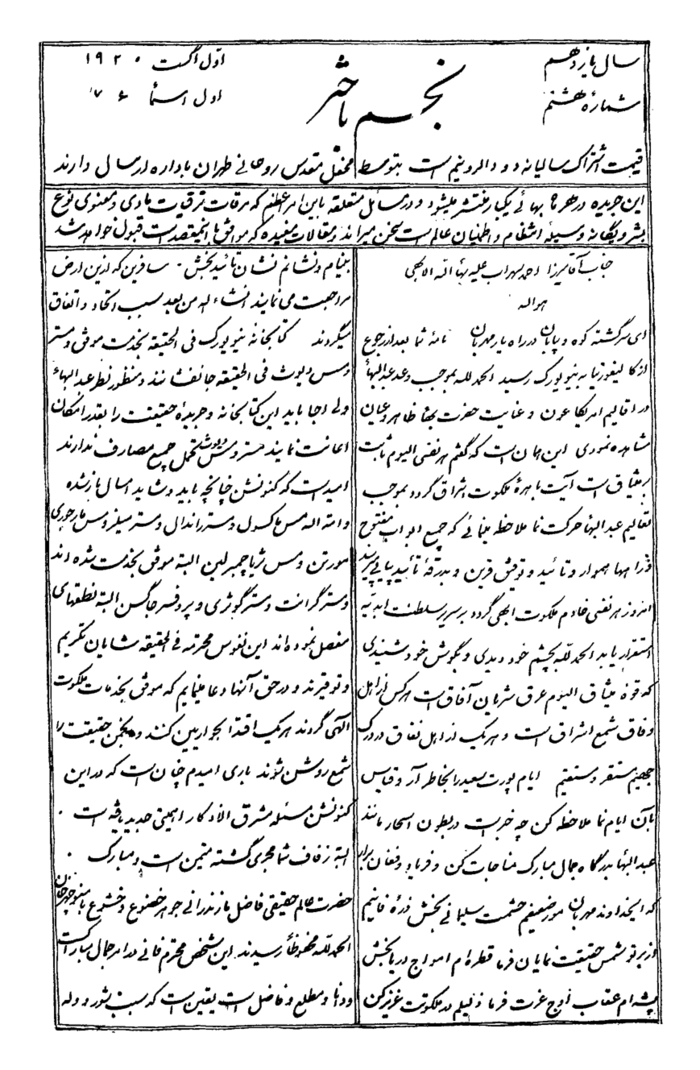 سال یازدهم
شماره هشتم
نجم باختر
اول اگست ۱۹۲۰
اول اسماء ۷۶
قیمت اشتراک سالیانه دو دالر و نیم است بتوسط محفل مقدس روحانی طهران باداره ارسال دارند
این جریده در هر ماه بهائی یکبار منتشر میشود و در مسائل متعلقه باین امر اعظم که مرقات ترقیات مادی و معنوی نوع
بشر و یگانه وسیله انتظام و اطمینان عالم است سخن میراند و مقالات مفیده که موافق با این مقصد است قبول خواهد شد
جناب آقا میرزا احمد سهراب علیه بهاء الله الابهی
هوالله
ای سرگشته کوه و بیابان در راه یار مهربان نامه شما بعد از رجوع
از کالیفورنیا به نیویورک رسید الحمدلله بموجب وعد عبدالبهاء
در اقالیم امریکا عون و عنایت حضرت بهاء ظاهر و عیان
مشاهده نمودی این همان است که گفتم هر نفسی الیوم ثابت
بر میثاق است آیت باهره ملکوت اشراق گردد بموجب
تعالیم عبدالبهاء حرکت نما ملاحظه مینمائی که جمیع ابواب مفتوح
و راهها هموار و تأیید و توفیق قرین و بدرقه تأیید پیاپی میرسد
امروز هر نفسی خادم ملکوت ابهی گردد بر سریر سلطنت ابدیه
استقرار یابد الحمدلله بچشم خود دیدی و بگوش خود شنیدی
که قوه میثاق الیوم عرق شریان آفاق است هرکس از اهل
وفاق شمع اشراق است و هر یک از اهل نفاق در درک
جحیم مستقر و مستقیم ایام پورت سعید را بخاطر آر و قیاس
بآن ایام نما ملاحظه کن چه خبر است در بطون اسحار مانند
عبدالبهاء بدرگاه جمال مبارک مناجات کن و فریاد و فغان برآر
که ایخداوند مهربان مور ضعیفم حشمت سلیمانی بخش ذره فانیم
از پرتو شمس حقیقت نمایان فرما قطره ام امواج دریا بخش
پشه ام عقاب اوج عزت فرما ذلیلم در ملکوت عزیز کن
بینام و نشانم نشان تأیید بخش - مسافرین که ازین ارض
مراجعت می نمایند انشاء الله من بعد سبب اتحاد و اتفاق
میگردند کتابخانه نیویورک فی الحقیقه بخدمت موفق و مستر
و مس دیوث فی الحقیقه جانفشانند و منظور نظر عبدالبهاء
ولی احبا باید این کتابخانه و جریده حقیقت را بقدر امکان
اعانت نمایند مستر و مس دیوث تحمل جمیع مصارف ندارند
امید است که کنونشن چنانچه باید و شاید امسال مزین شده
و امة الله مس ماکسول و مستر راندال و مستر میلز و مس مارجوری
مورتن و مس ثریا چمبرلین البته موفق بخدمت شده اند
و مستر گرانت و مستر گوثری و پروفسر جاکسن البته نطقهای
مفصل نموده اند این نفوس محترمه فی الحقیقه شایان تکریم
و توقیرند و در حق آنها دعا مینمایم که موفق بخدمات ملکوت
الهی گردند هر یک اقتدا بحواریین کنند و انجمن حقیقت را
شمع روشن شوند باری امیدم چنان است که در این
کنونشن مسئله مشرق الاذکار اهمیتی جدید یافته است
البته زفاف شما مجری گشته متیمن است و مبارک
حضرت عالم حقیقی فاضل مازندرانی جوهر خضوع و خشوع با منوچهر خان
الحمدلله محفوظاً رسیدند این شخص محترم فانی در امر جمال مبارک است
و دانا و مطلع و فاضل است یقین است که سبب شور و وله